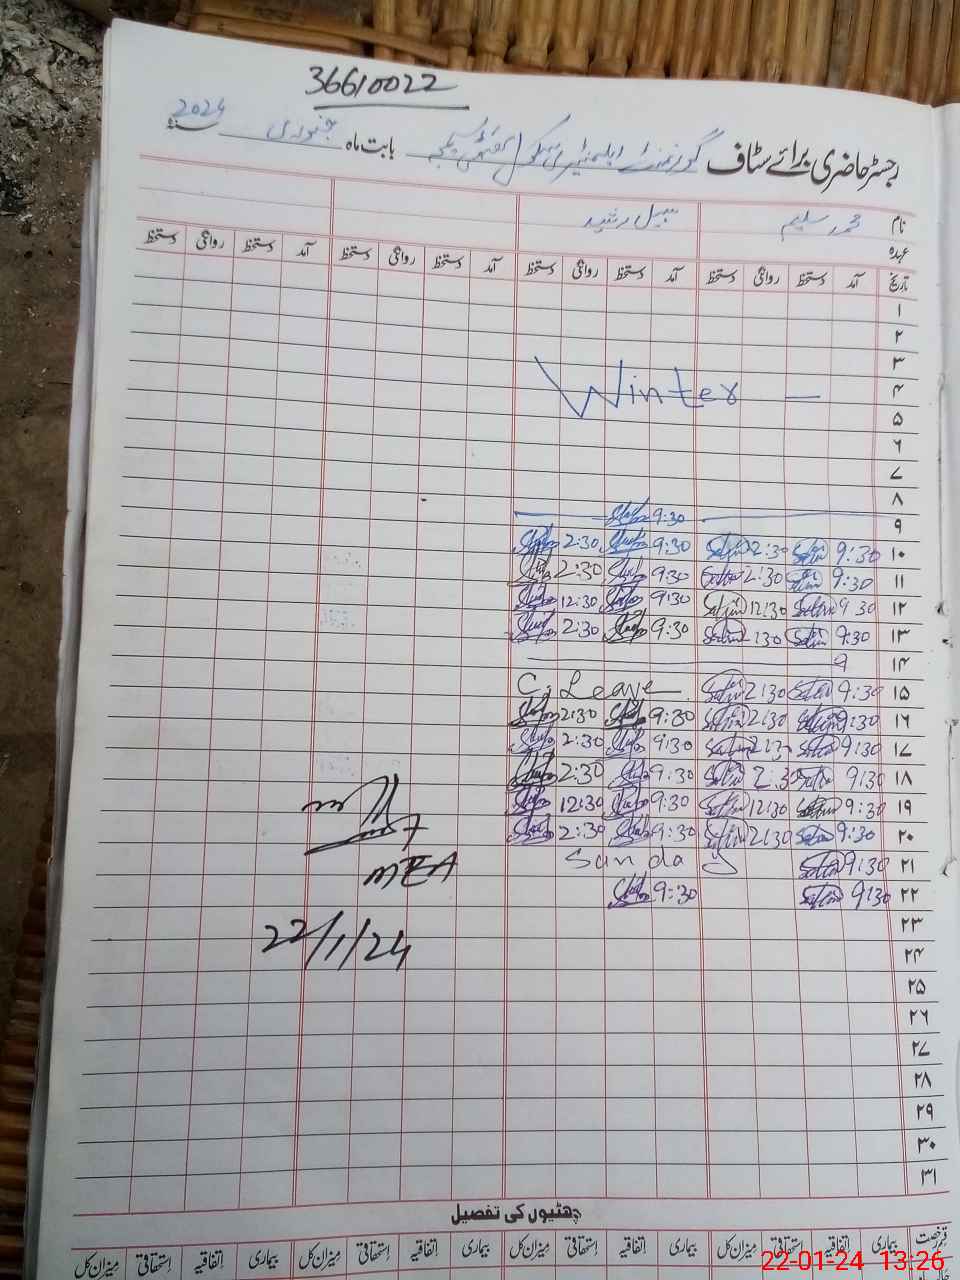 36610022
رجسٹر حاضری برائے سٹاف گورنمنٹ ایلیمنٹری سکول بابت ماہ جنوری سنہ 2024
نام محمد سلیم سہیل رشید
عہدہ
تاریخ آمد دستخط روانگی دستخط آمد دستخط روانگی دستخط آمد دستخط روانگی دستخط آمد دستخط روانگی دستخط
۱
۲
۳
۴ Winter —
۵
۶
۷
۸
۹ 9:30
۱۰ 9:30 2:30 9:30 2:30
۱۱ 9:30 2:30 9:30 2:30
۱۲ 9:30 12:30 9:30 12:30
۱۳ 9:30 2:30 9:30 2:30
۱۴ 9
۱۵ 9:30 2:30 C. Leave
۱۶ 9:30 2:30 9:30 2:30
۱۷ 9:30 2:30 9:30 2:30
۱۸ 9:30 2:30 9:30 2:30
۱۹ 9:30 12:30 9:30 12:30
۲۰ 9:30 2:30 9:30 2:30
۲۱ 9:30 Sunday
۲۲ 9:30 9:30
MEA
۲۳
22/1/24
۲۴
۲۵
۲۶
۲۷
۲۸
۲۹
۳۰
۳۱
چھٹیوں کی تفصیل
قسم رخصت بیماری اتفاقیہ استحقاقی میزان کل بیماری اتفاقیہ استحقاقی میزان کل بیماری اتفاقیہ استحقاقی میزان کل بیماری اتفاقیہ استحقاقی میزان کل
22-01-24 13:26